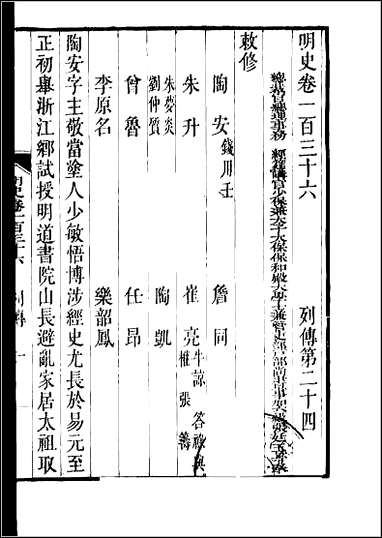 明史卷一百三十六　列傳第二十四
總裁官總理事務　經筵講官少保兼太子太保保和殿大學士兼管吏部戶部尚書事加六級張廷玉等奉
敕修
陶安　錢用壬　詹同
朱升　崔亮　牛諒　答祿與權　張籌
朱夢炎　劉仲質　陶凱
曾魯　任昂
李原名　樂韶鳳
陶安字主敬當塗人少敏悟博涉經史尤長於易元至
正初舉浙江鄉試授明道書院山長避亂家居太祖取
明史卷一百三十六　列傳　一